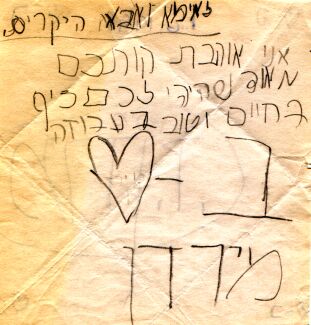 לאימא ואבא היקרים
אני אוהבת קותכם
מאוד שהיהי לכם כיף
בחיים וטוב בעבודה
ב-
מירדן